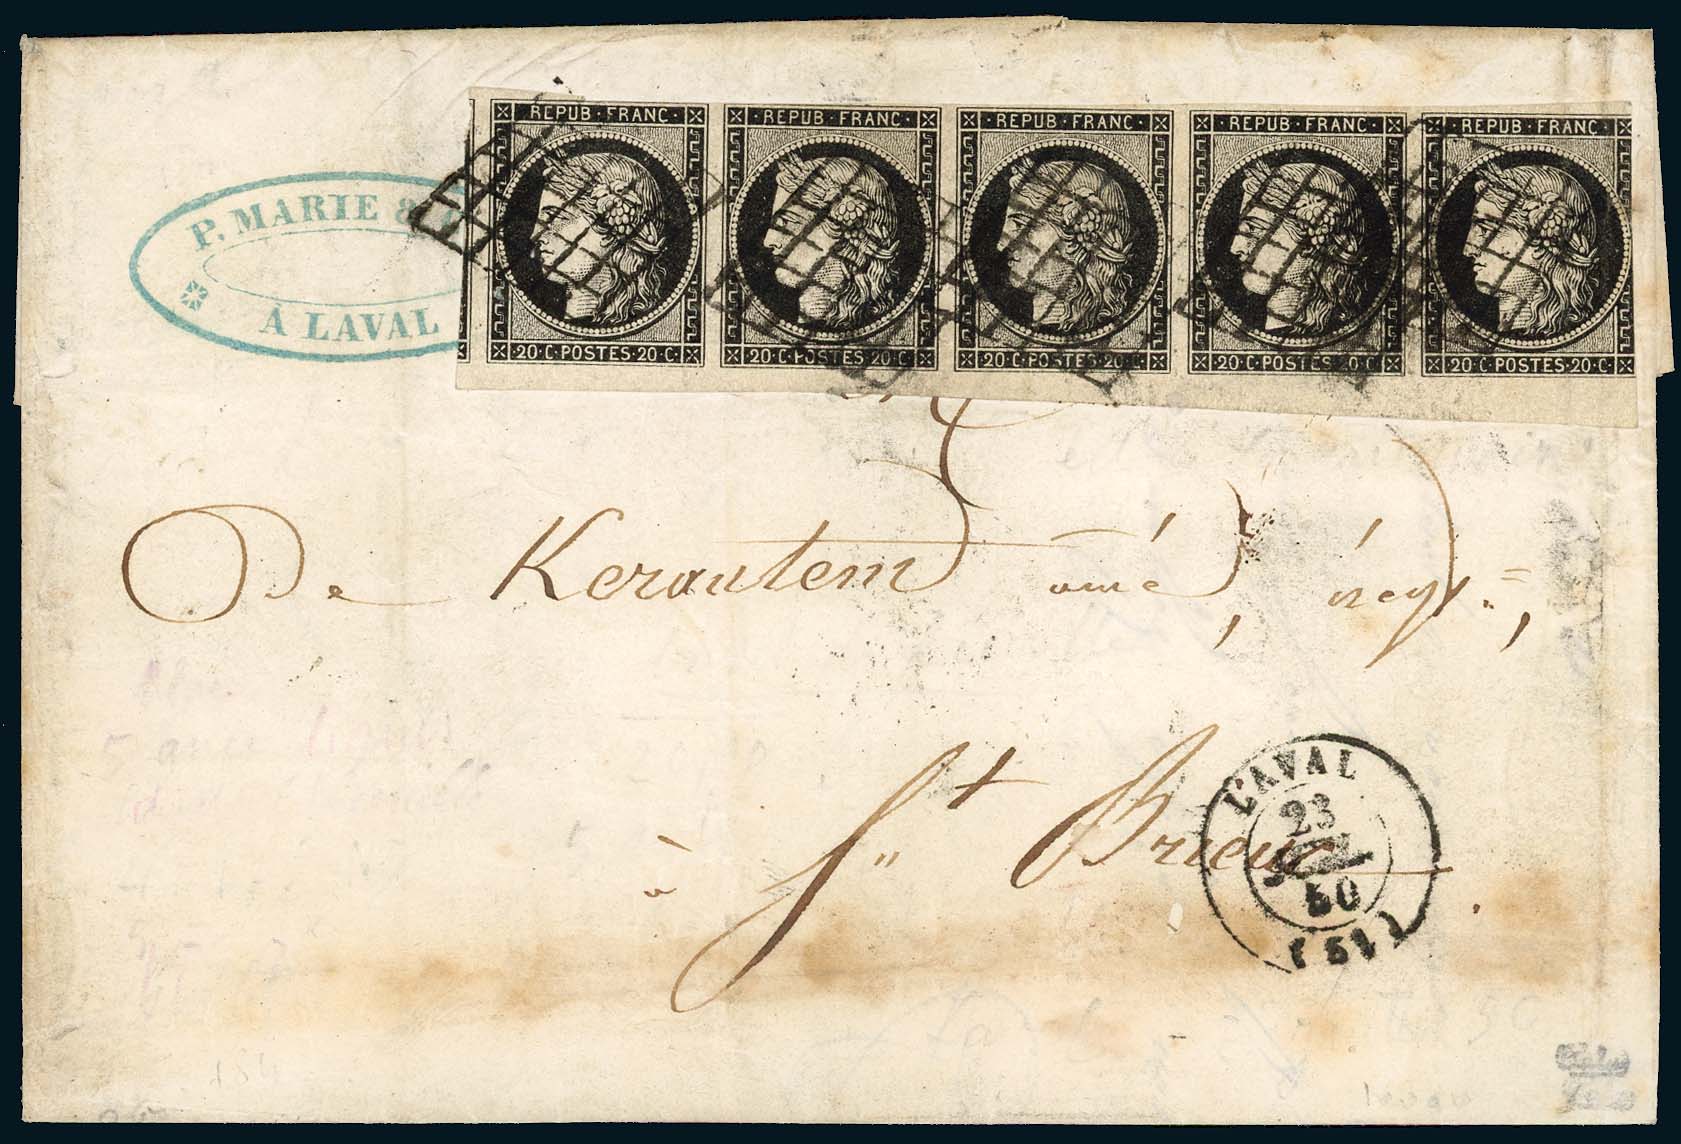 REPUB·FRANC· REPUB·FRANC· REPUB·FRANC· REPUB·FRANC· REPUB·FRANC·
20·C·POSTES·20·C· 20·C·POSTES·20·C· 20·C·POSTES·20·C· 20·C·POSTES·20·C· 20·C·POSTES·20·C·
P. MARIE &
À LAVAL
De Kerautem aîné, négt.,
à St Brieuc.
LAVAL
23
50
(51)